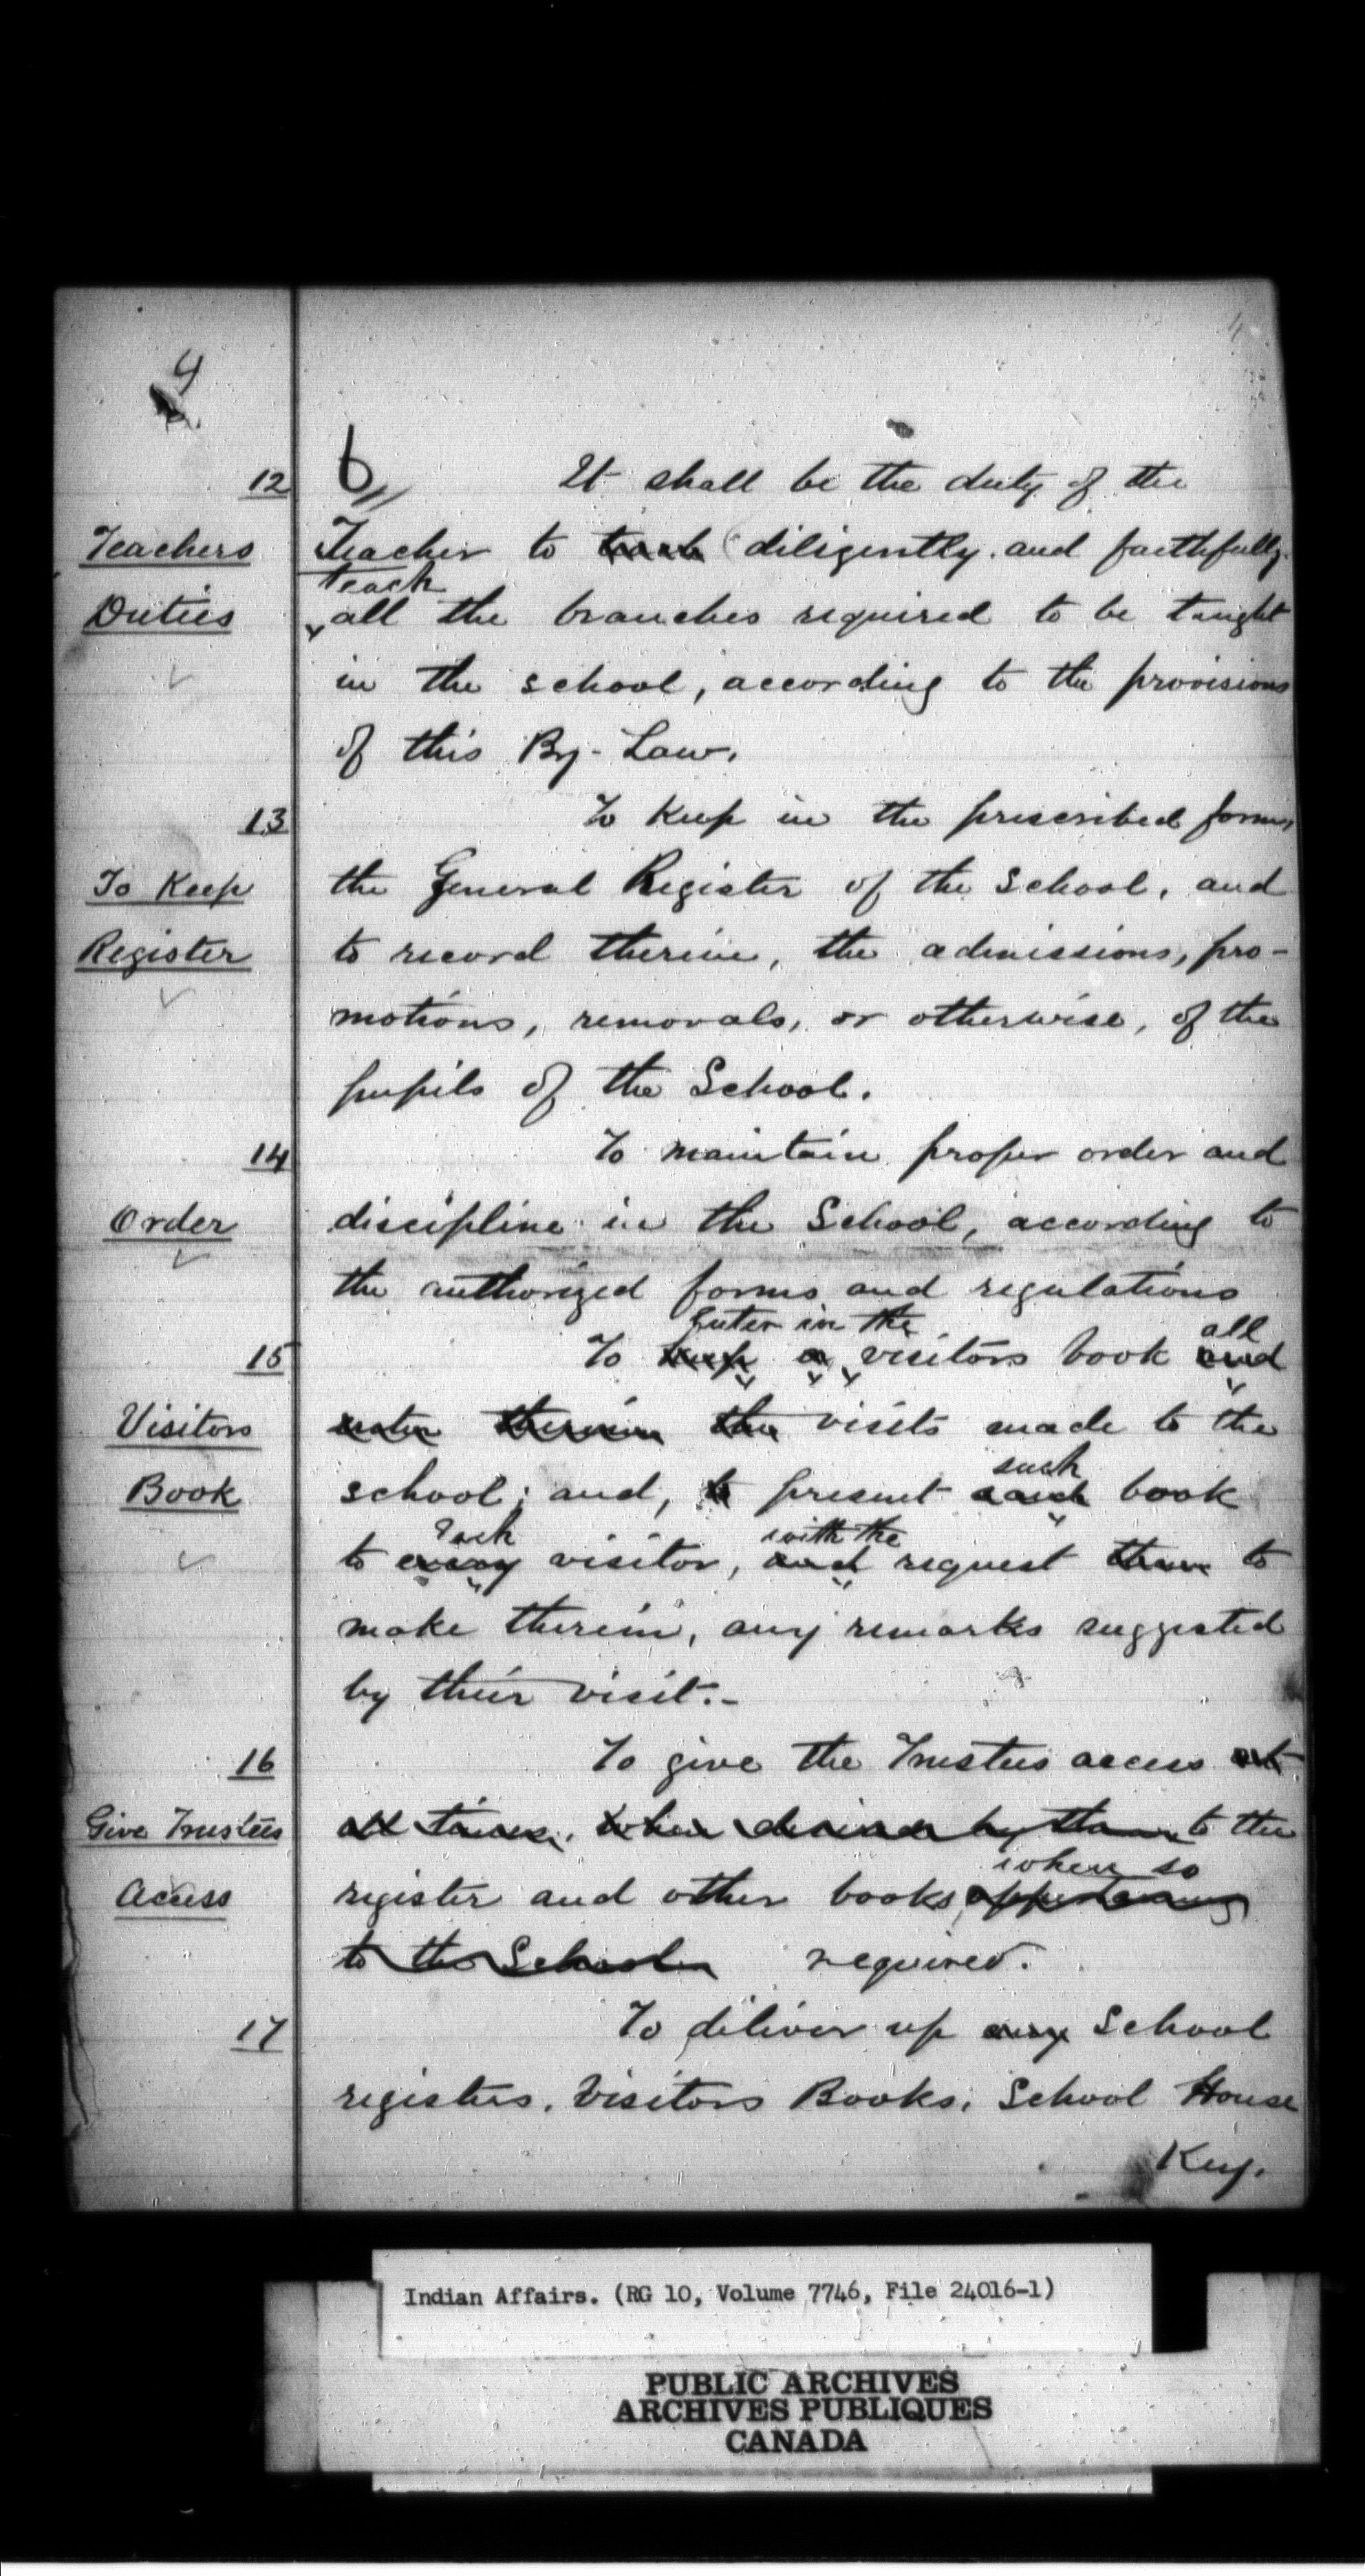 4
4
12
6
It shall be the duty of the
Teachers
Teacher to teach diligently and faithfully
teach
Duties
all the branches required to be taught
in the school, according to the provisions
of this By-Law.
13
To Keep in the prescribed forms
To Keep
the General Register of the School, and
Register
to record therein, the admissions, pro-
motions, removals, or otherwise, of the
pupils of the School.
14
To maintain proper order and
Order
discipline in the School, according to
the authorized forms and regulations
Enter in the all
15
To keep a visitors book and
Visitors
enter therein the visits made to the
such
Book
school; and, to present said book
Each with the
to every visitor, and request them to
make therein, any remarks suggested
by their visit.-
16
To give the Trustees access at
Give Trustees
all times, when desired by them to the
when so
Access
register and other books, appertaining
to the School required.
17
To deliver up any School
registers, Visitors Books, School House
Key.
Indian Affairs. (RG 10, Volume 7746, File 24016-1)
PUBLIC ARCHIVES
ARCHIVES PUBLIQUES
CANADA